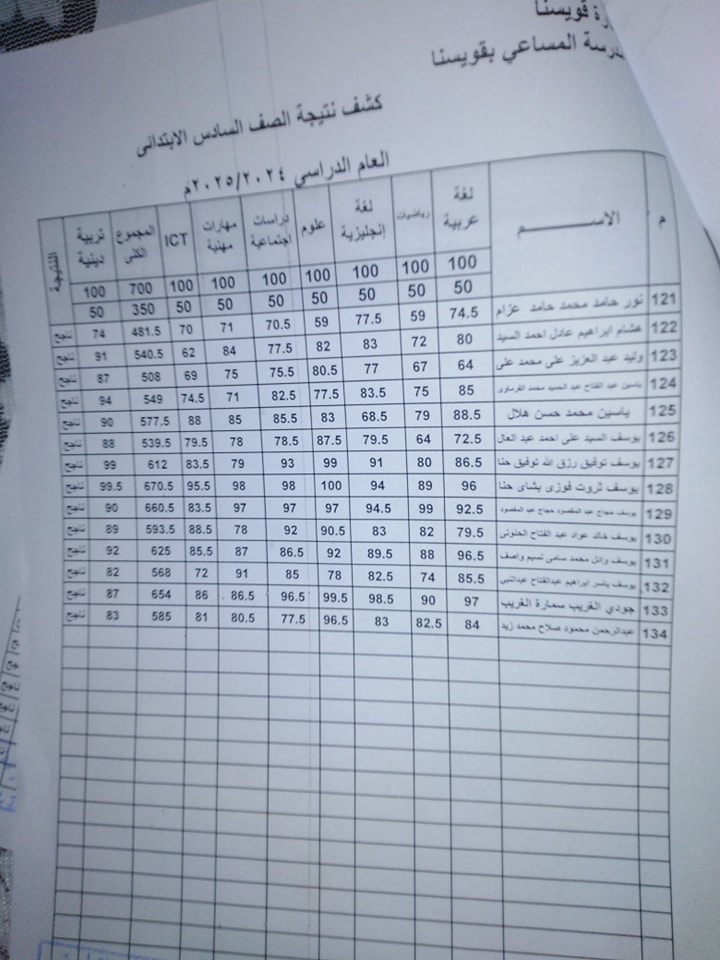 رة قويسنا
درسة المساعي بقويسنا
كشف نتيجة الصف السادس الابتدائى
العام الدراسي ٢٠٢٥/٢٠٢٤م
م الاســــــــم لغة عربية رياضيات لغة إنجليزية علوم دراسات اجتماعية مهارات مهنية ICT المجموع الكلى تربية دينية النتيجة
100 100 100 100 100 100 100 700 100
50 50 50 50 50 50 50 350 50
121 نور حامد محمد حامد عزام 74.5 59 77.5 59 70.5 71 70 481.5 74 ناجح
122 هشام ابراهيم عادل احمد السيد 80 72 83 82 77.5 84 62 540.5 91 ناجح
123 وليد عبد العزيز على محمد على 64 67 77 80.5 75.5 75 69 508 87 ناجح
124 ياسين عبد الفتاح عبد الحميد محمد الفرماوى 85 75 83.5 77.5 82.5 71 74.5 549 94 ناجح
125 ياسين محمد حسن هلال 88.5 79 68.5 83 85.5 85 88 577.5 90 ناجح
126 يوسف السيد على احمد عبد العال 72.5 64 79.5 87.5 78.5 78 79.5 539.5 88 ناجح
127 يوسف توفيق رزق الله توفيق حنا 86.5 80 91 99 93 79 83.5 612 99 ناجح
128 يوسف ثروت فوزى بشاى حنا 96 89 94 100 98 98 95.5 670.5 99.5 ناجح
129 يوسف حجاج عبد المقصود حجاج عبد المقصود 92.5 99 94.5 97 97 97 83.5 660.5 90 ناجح
130 يوسف خالد عواد عبد الفتاح 79.5 82 83 90.5 92 78 88.5 593.5 89 ناجح
131 يوسف وائل محمد سامى نسيم واصف 96.5 88 89.5 92 86.5 87 85.5 625 92 ناجح
132 يوسف ياسر ابراهيم عبدالفتاح عبدالنبى 85.5 74 82.5 78 85 91 72 568 82 ناجح
133 جودي الغريب سمارة الغريب 97 90 98.5 99.5 96.5 86.5 86 654 87 ناجح
134 عبدالرحمن محمود صلاح محمد زيد 84 82.5 83 96.5 77.5 80.5 81 585 83 ناجح